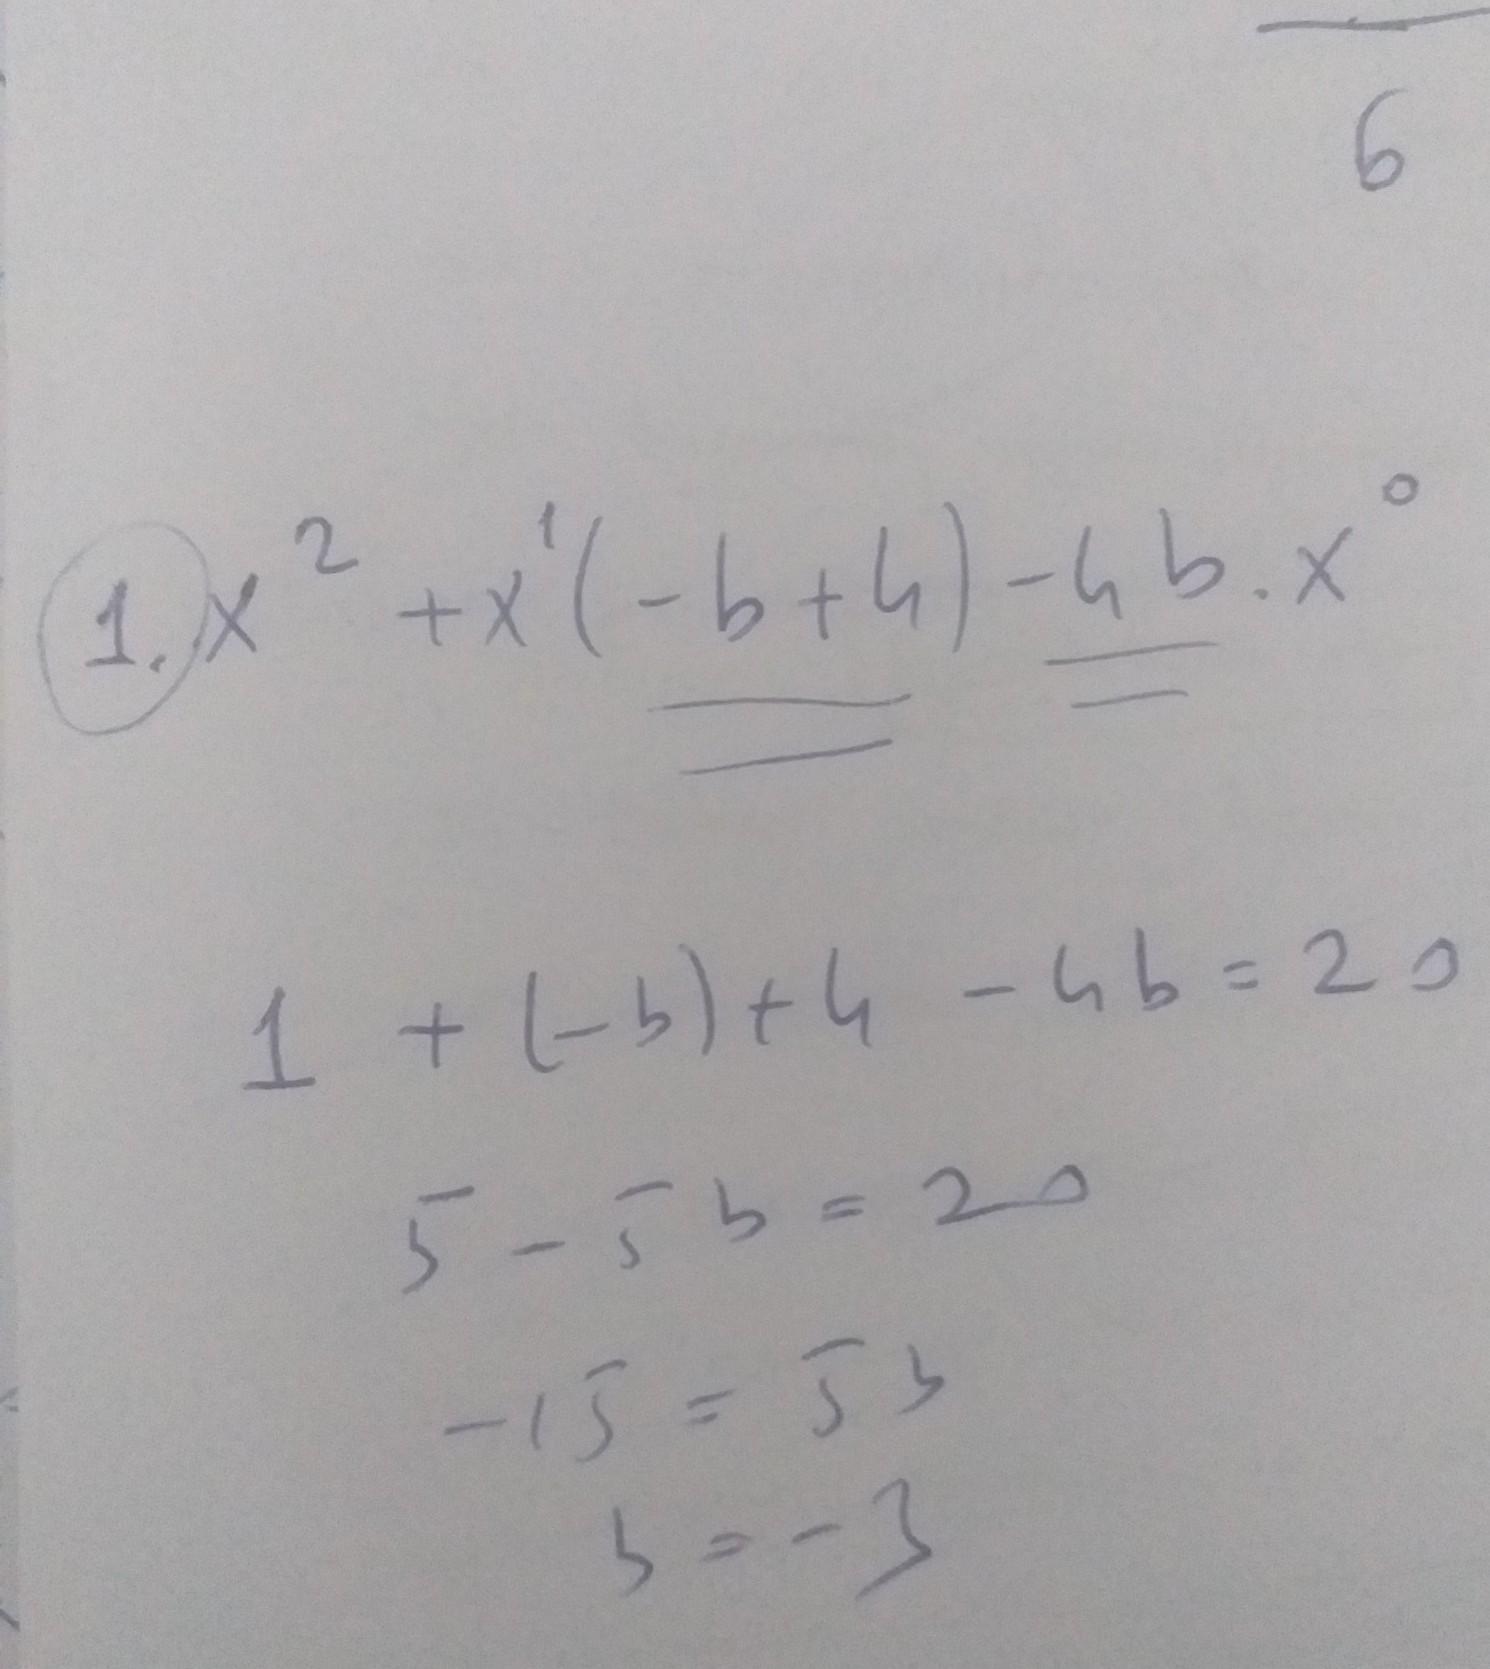 6
1. x² + x¹(-b+4) - 4b . x⁰
1 + (-b) + 4 - 4b = 20
5 - 5b = 20
-15 = 5b
b = -3